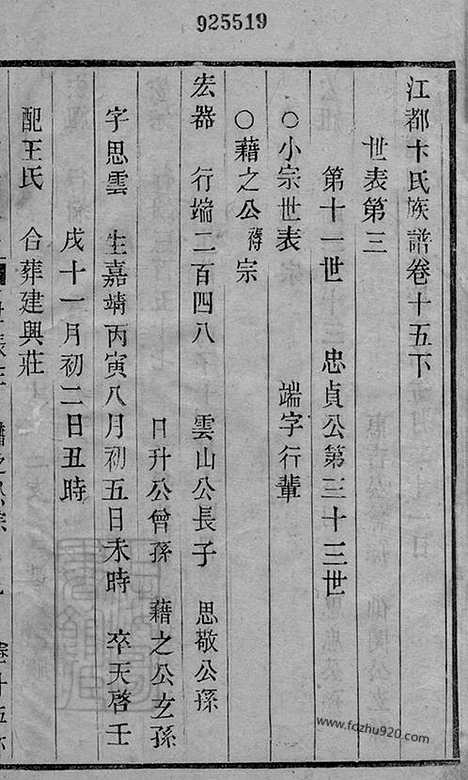 925519
江都卞氏族譜卷十五下
世表第三
第十一世 忠貞公第三十三世
○小宗世表 端字行輩
○藉之公蓆宗
宏器 行端二百四八 雲山公長子 思敬公孫
日升公曾孫 藉之公玄孫
字思雲 生嘉靖丙寅八月初五日未時 卒天啓壬
戌十一月初二日丑時
配王氏 合葬建興莊
www.fczhu920.com